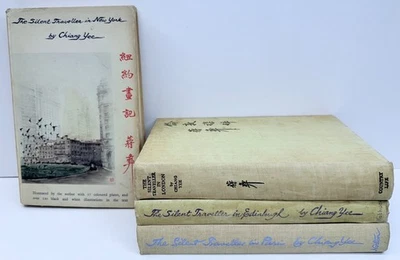 The Silent Traveller in New York
by Chiang Yee
紐約畫記
蔣彝
Illustrated by the author with 16 coloured plates, and
over 100 black and white illustrations in the text
THE
SILENT
TRAVELLER
IN
LONDON
by
CHIANG
YEE
蔣彝
COUNTRY
LIFE
The Silent Traveller in Edinburgh by Chiang Yee
The Silent Traveller in Paris by Chiang Yee